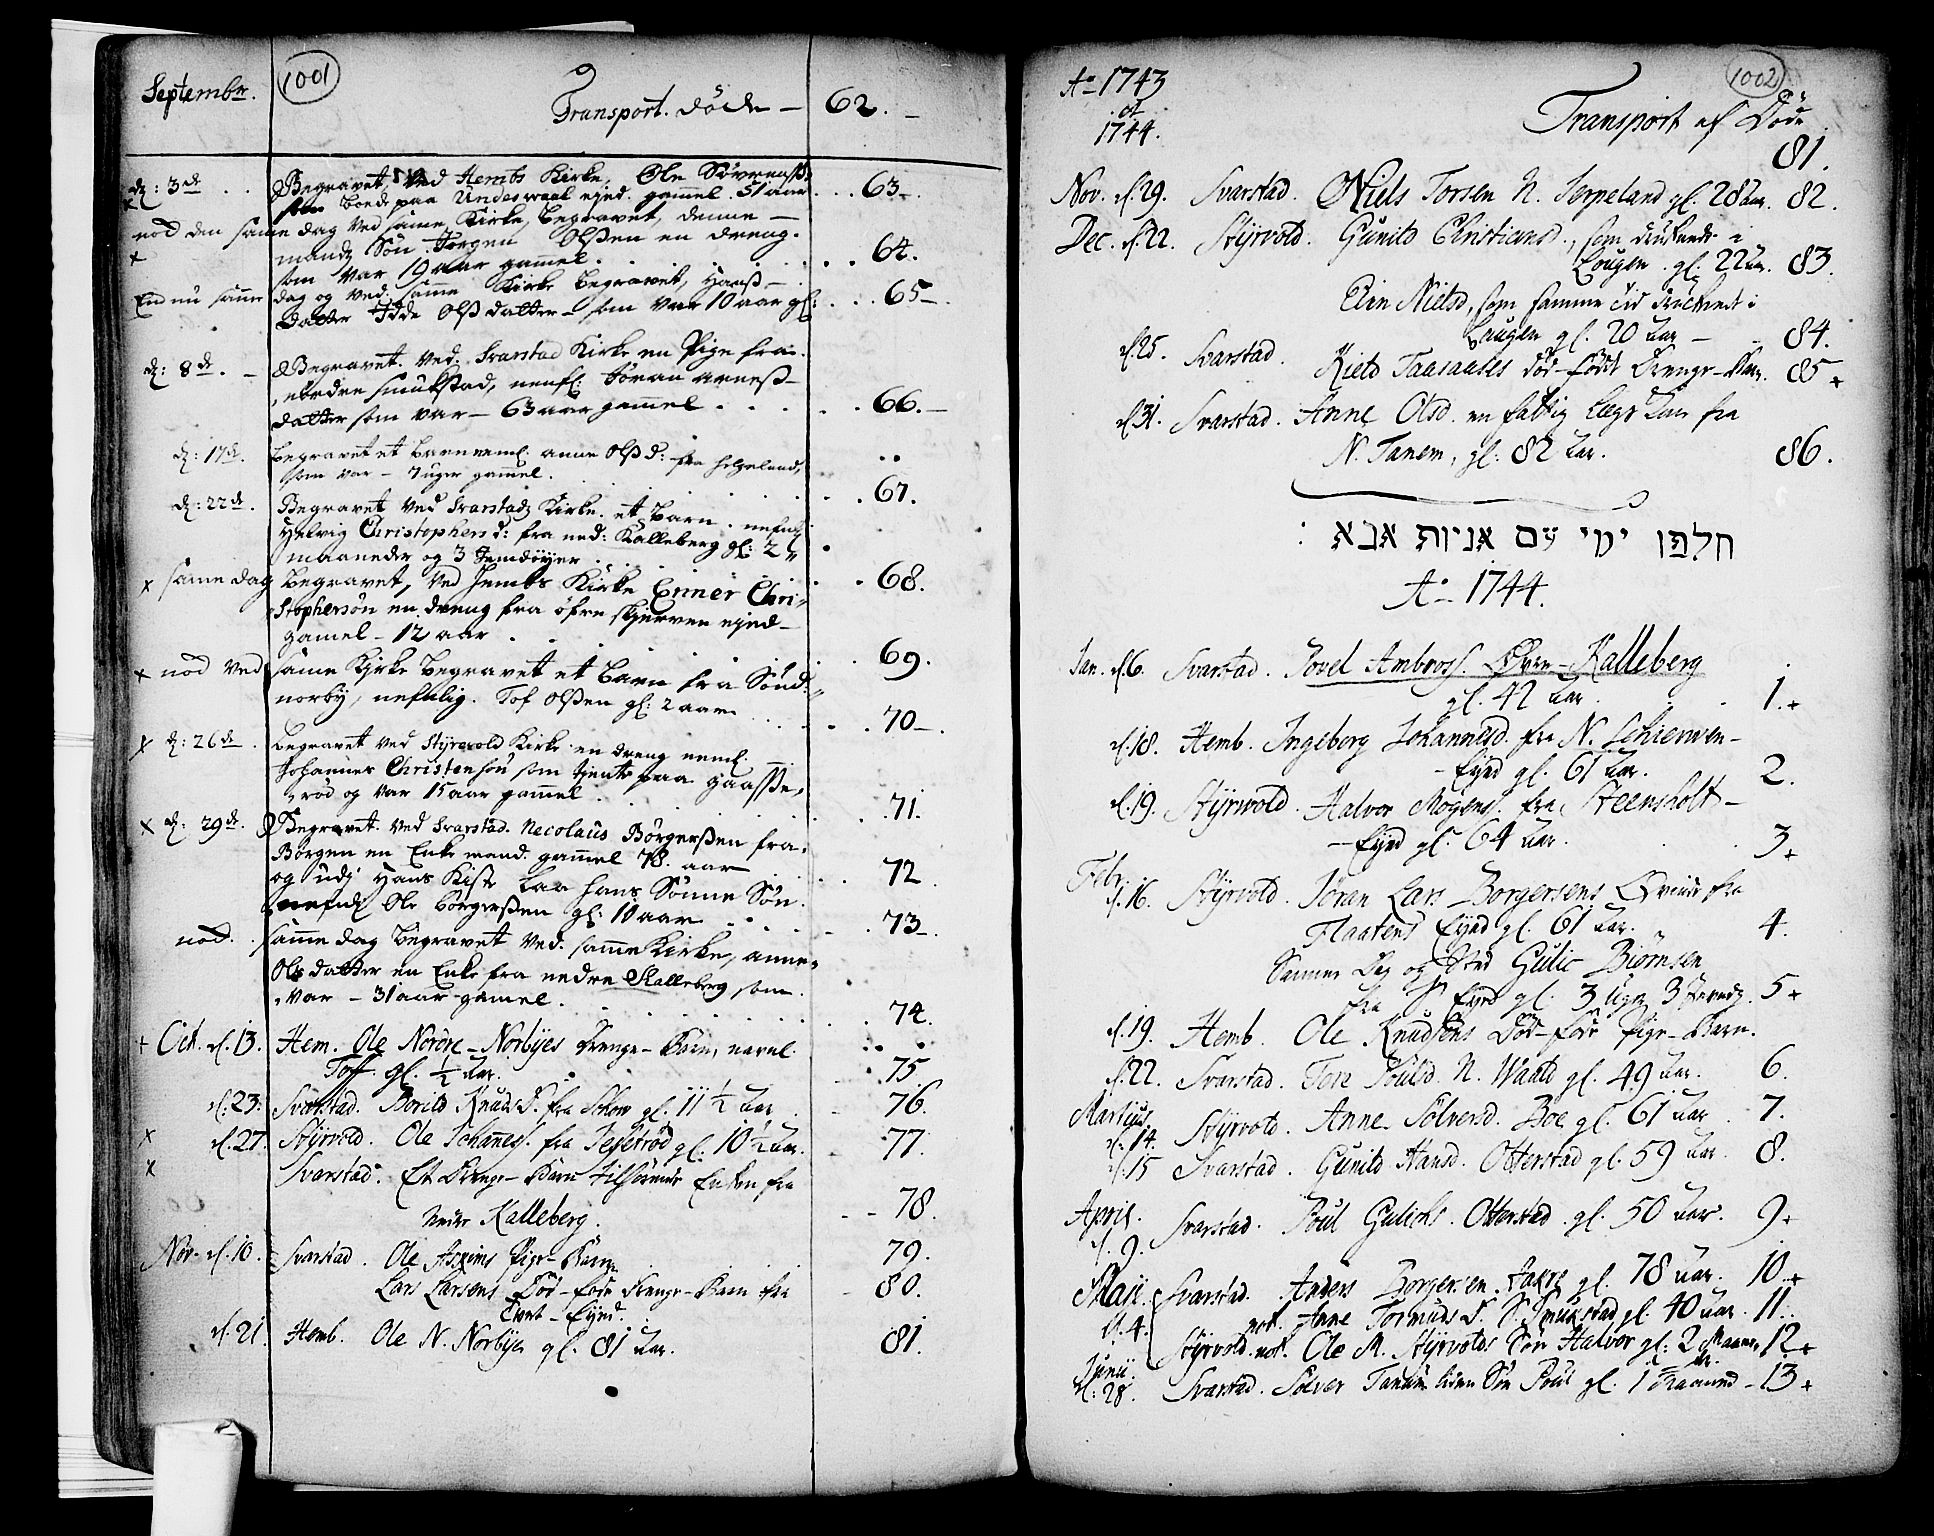 Septembr.
1001
Transport. døde – 62. –
d: 3de . . Begravet, Ved Hembs Kirke, Ole Sövrenss.
som boede paa Undeswaal ejed. gamel. 51 aar . . . 63 –.
nod den same dag Ved same Kirke, begravet, denne –
mands Sön Jörgen Olssen en dreng.
som var 19 aar gamel. . . . 64.
End nu same dag og Ved. same Kirke begravet, Hanss –
datter Idde Olss datter – som var 10 aar gl: . . . 65 –.
d: 8de. – Begravet. Ved. Svarstad Kirke en Pige fra.
nedre smukstad, nenfl: Jöran arness –
datter som var – 63 aar gamel . . . . . 66. –
d: 17de. begravet et barn nemf. anne Olss d: fra helgeland,
som var – 7 uger gamel. . . . 67.
d: 22de. Begravet Ved Svarstads Kirke. et barn. nefnl.
Helvig Christophers d: fra ned: Kalleberg gl: 2
maaneder og 3 . . . 68.
x same dag begravet, Ved Hembs Kirke Enner Chri–
stophersön en dreng fra öfre skjerven ejed –
gamel – 12 aar . . . 69.
x nod Ved same Kirke begravet et Barn fra Sönd:
norby, nefnlig. Tof Olssen gl: 2 aar . . . 70 –.
x d: 26de. begravet Ved Styrevold Kirke en dreng nemf.
Johannes Christensön som tiente paa gaasse,
röd og var 15 aar gamel . . . 71.
x d: 29de. Begravet. Ved Svarstad. Necolaus Börgerssen fra.
Borgen en Enke mand. gammel 78. aar . . . 72.
og udj Hans Kiste laa hans Sönne Sön.
nefnl Ole börgerssen gl: 10 aar . . . 73 –.
nod. same dag begravet Ved. samme Kirke, anne
Ols datter en Enke fra nedre Skalleberg som.
var – 31 aar gamel. . . . 74.
+ Oct. d. 13. Hem. Ole Nordre – Norbyes Drenge – Barn, navnl.
Toff. gl. ½ Aar. 75
d: 23. Svarstad. Borild Knuds D. fra Schow gl. 11 ½ Aar 76.
x d. 27. Styrvold. Ole Johannes s. fra Jesserød gl. 10 ½ Aar. 77.
x Svarstad. Et Drenge – Barn tilhörende Enken fra
Neder Kalleberg. 78.
Nov. d. 10. Svarstad. Ole Askims Pige – Barn 79.
Lars Larsens Død – føde Drenge – Barn fra 80.
Tvet – Eyed.
d. 21. Hemb. Ole N. Norbye gl. 81 Aar. 81.
1002
Ao 1743
et
1744.
Transport af Døde
81.
Nov. d. 29. Svarstad. Niels Torsen N. Serpeland gl. 28 Aar. 82.
Dec. d. 22. Styrvold. Gunild Christiansd., som druknede i
Lougen. gl. 22 Aar. 83.
Elen Nielsd, som samme Tid druknede i
Laugen gl. 20 Aar – 84.
d. 25. Svarstad. Kield Taasaases død – født Drenge – Barn. 85 +
d. 31. Svarstad. Anne Olsd. en fattig Legs Lem fra
N. Tanem, gl. 82 Aar. 86.
חלפו ימי עם אניות אבא :
Ao 1744.
Jan. d. 6. Svarstad. Povel Ambros s. Øvre – Kalleberg
gl. 42 Aar . . 1. +
d. 18. Hemb. Ingeborg Johannesd. fra N. Schierwen –
– Eyed gl. 61 Aar. 2.
d. 19. Styrwold. Halvor Mogens s. fra Steensholt –
– Eyed gl. 64 Aar. 3 +
Febr.
d. 16. Styrvold. Jöran Lars Borgersens Qvinde fra
Flaatens Eyed gl. 61 Aar. 4.
Samme Dag og Sted Gulic Biørnsen
fra Eyed gl. 3 Uger 3 5 +
d. 19. Hemb. Ole Knudsens Død – føde Pige – Barn.
d. 22. Svarstad. Tore Poulsd. N. Waald gl. 49 Aar. 6.
Martius.
d. 14. Styrvold. Anne Solversd. Boe gl. 61 Aar 7.
d. 15 Svarstad. Gunild Hansd. Otterstad gl. 59 Aar. 8.
April.
d. 9. Svarstad. Poul Gulichs. Otterstad. gl. 50 Aar. 9 +
Maji.
d. 4. Svarstad. Anders Borgersen. Aakre gl. 78 Aar. 10. +
not. Anne Tormods D. S. Smukstad gl. 40 Aar. 11.
Styrvold. not. Ole M. Styrvolds Søn Halvor gl: 2 Maaneder 12 +
Junii.
d. 28. Svarstad. Solver Tanum liden Søn Poul gl. 1 Maaned – 13 +